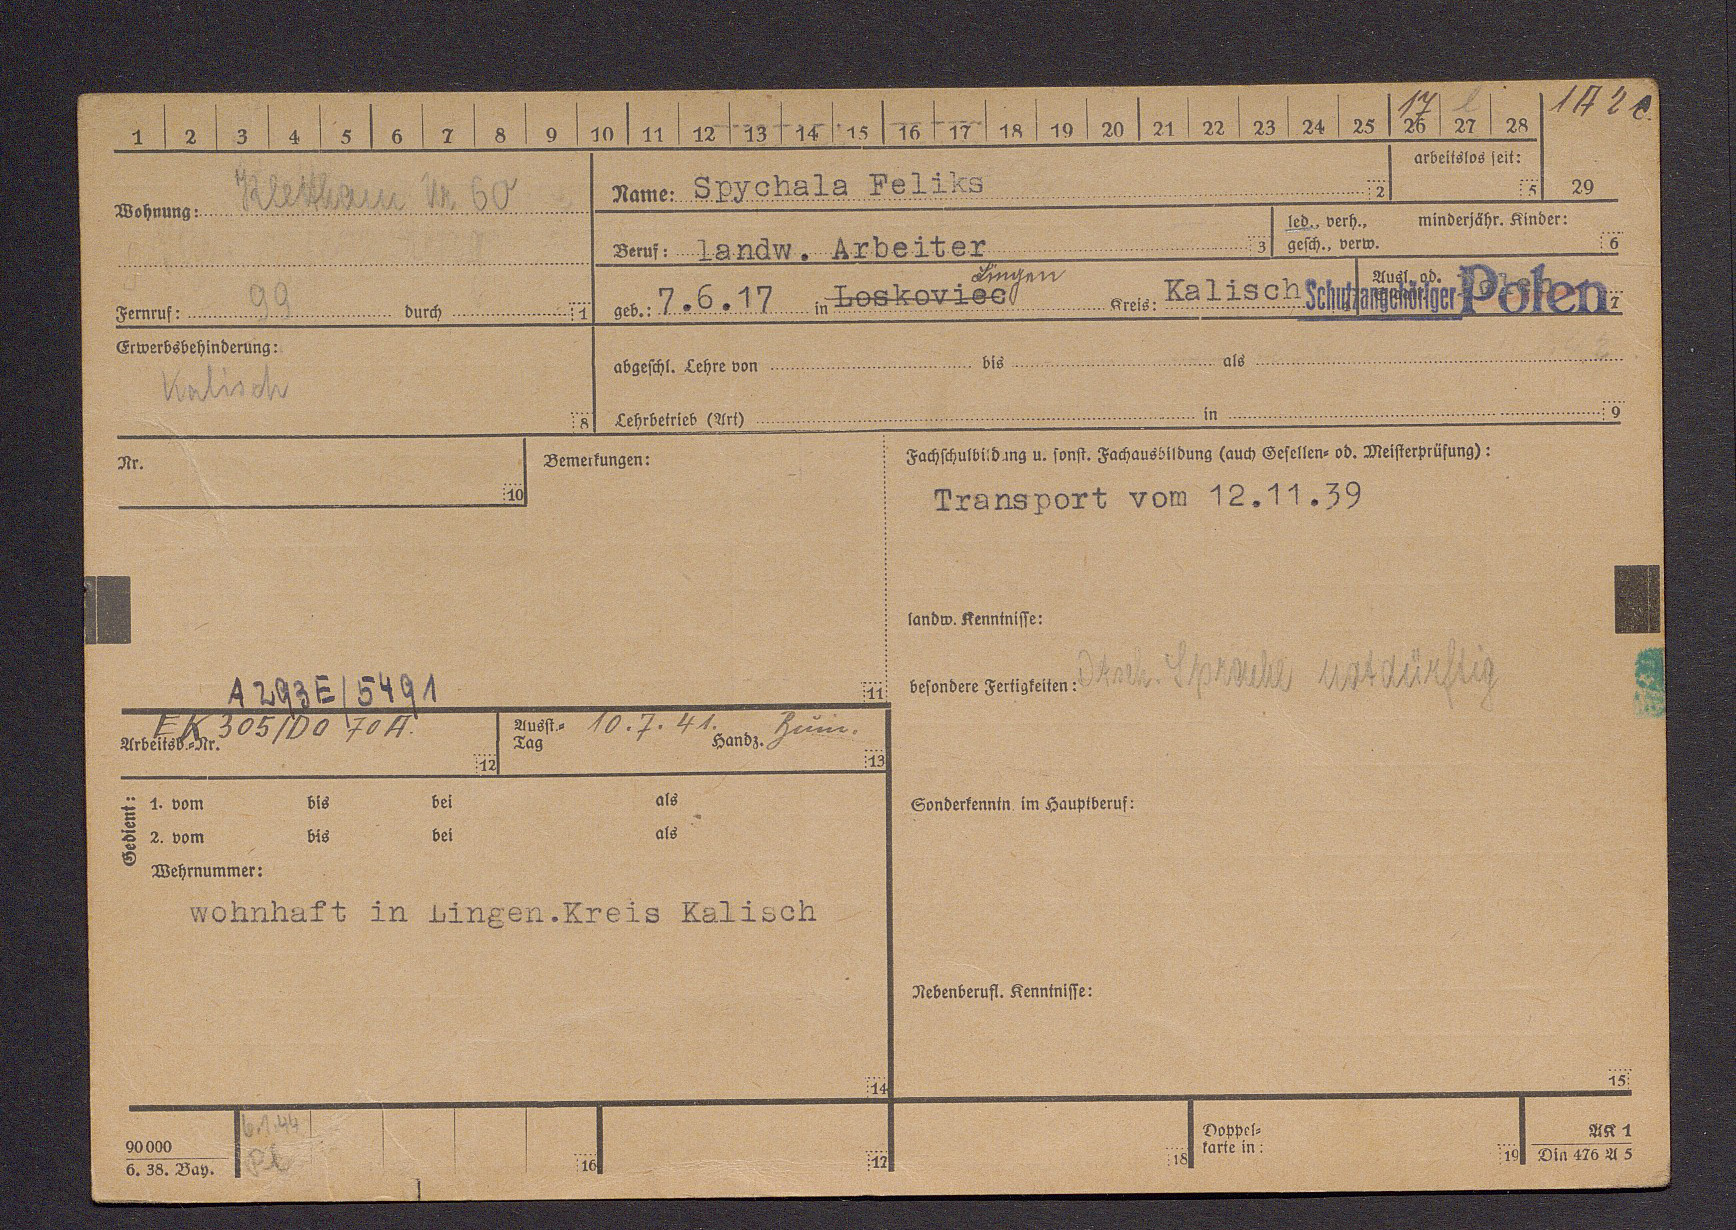 1 2 3 4 5 6 7 8 9 10 11 12 13 14 15 16 17 18 19 20 21 22 23 24 25 26 27 28
17 1A2c.
arbeitslos seit:
5 29
Wohnung: Nr. 60
Name: Spychala Feliks 2
Beruf: landw. Arbeiter 3
led., verh., minderjähr. Kinder:
gesch., verw. 6
Lingen
Fernruf: 99 durch 1
geb.: 7.6.17 in Loskoviec Kreis: Kalisch
Ausl. od.
Schutzangehöriger Polen 7
Erwerbsbehinderung:
Kalisch
8
abgeschl. Lehre von bis als
Lehrbetrieb (Art) in 9
Nr.
10
Bemerkungen:
A293E/5491
11
Fachschulbildung u. sonst. Fachausbildung (auch Gesellen- od. Meisterprüfung):
Transport vom 12.11.39
landw. Kenntnisse:
besondere Fertigkeiten: Dtsch. Sprache notdürftig
Sonderkenntn. im Hauptberuf:
Nebenberufl. Kenntnisse:
15
EK 305/D0 70A.
Arbeitsb.-Nr. 12
Ausst.- Tag 10.7.41. Handz. 13
Gedient:
1. vom bis bei als
2. vom bis bei als
Wehrnummer:
wohnhaft in Lingen.Kreis Kalisch
14
90000
6. 38. Bay.
6.1.44
16
17
18
Doppel-
karte in:
19
AK 1
Din 476 A 5